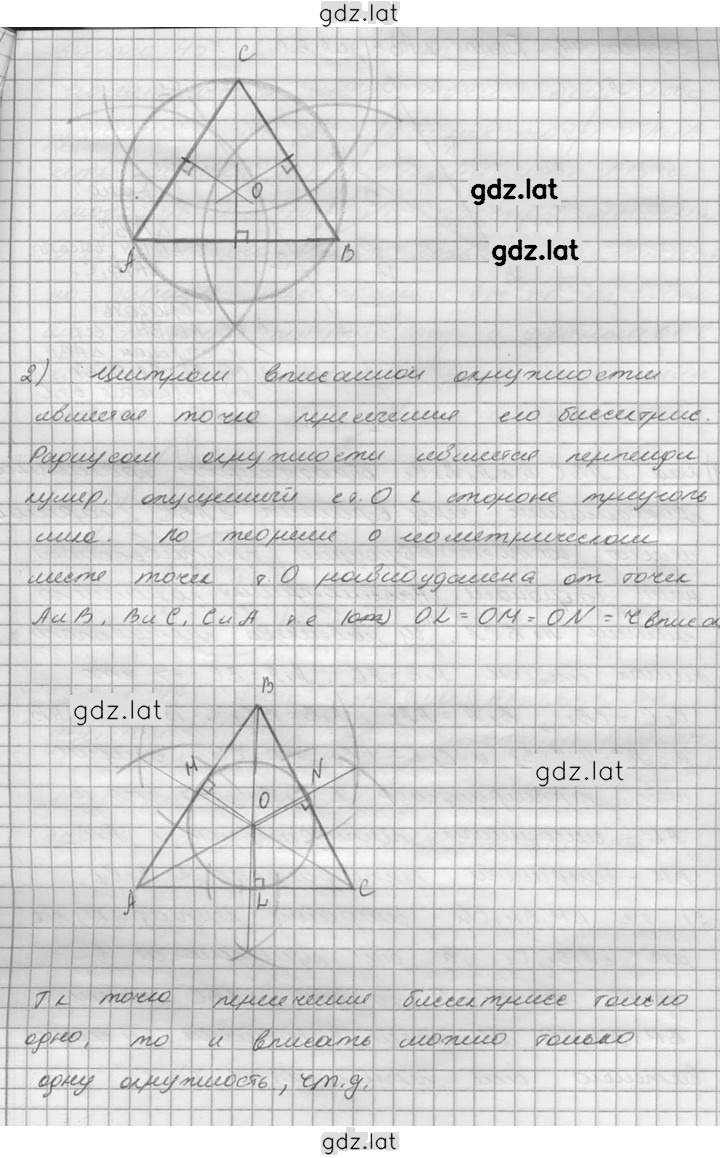 gdz.lat
C
O
gdz.lat
gdz.lat
A
B
2) Центром вписанной окружности
является точка пересечения его биссектрис.
Радиусом окружности является перпенди
куляр, опущенный с т. О к стороне треуголь
ника. По теореме о геометрическом
месте точек т. О равноудалена от точек
А и В, В и С, С и А т.е OL = OM = ON = r впис
B
gdz.lat
M
N
gdz.lat
O
A
L
C
Т.к точка пересечения биссектрисс только
одна, то и вписать можно только
одну окружность, чт.д.
gdz.lat